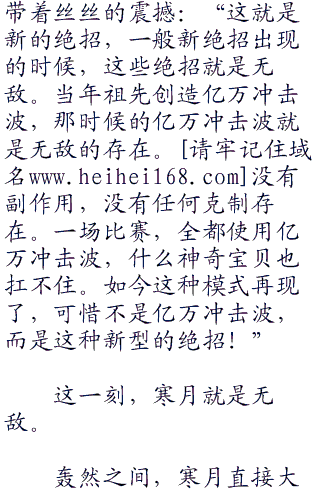 带着丝丝的震撼：“这就是
新的绝招，一般新绝招出现
的时候，这些绝招就是无
敌。当年祖先创造亿万冲击
波，那时候的亿万冲击波就
是无敌的存在。[请牢记住域
名www.heihei168.com]没有
副作用，没有任何克制存
在。一场比赛，全都使用亿
万冲击波，什么神奇宝贝也
扛不住。如今这种模式再现
了，可惜不是亿万冲击波，
而是这种新型的绝招！”
这一刻，寒月就是无
敌。
轰然之间，寒月直接大